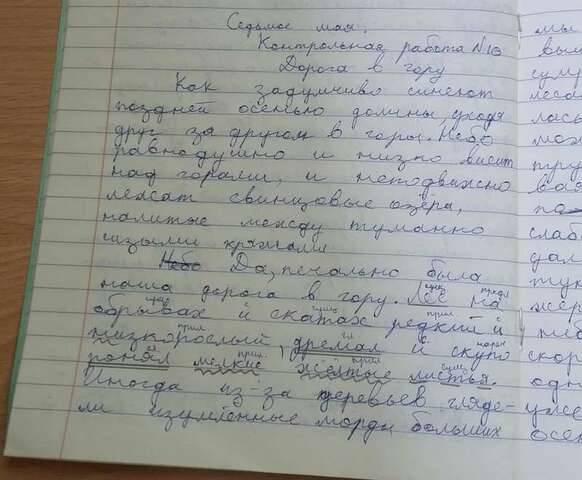 Седьмое мая.
Контрольная работа №10
Дорога в гору
Как задумчиво синеют
поздней осенью долины, уходя
друг за другом в горы. Небо
равнодушно и низко висит
над горами, и неподвижно
лежат свинцовые озёра,
налитые между туманно
сизыми кряжами
Небо Да, печально была
наша дорога в гору. Лес на
обрывах и скатах редкий и
низкорослый, дремал и скупо
ронял мелкие жёлтые листья.
Иногда из-за деревьев гляде-
ли изумлённые морды больших
мы
лось
слаб
осен